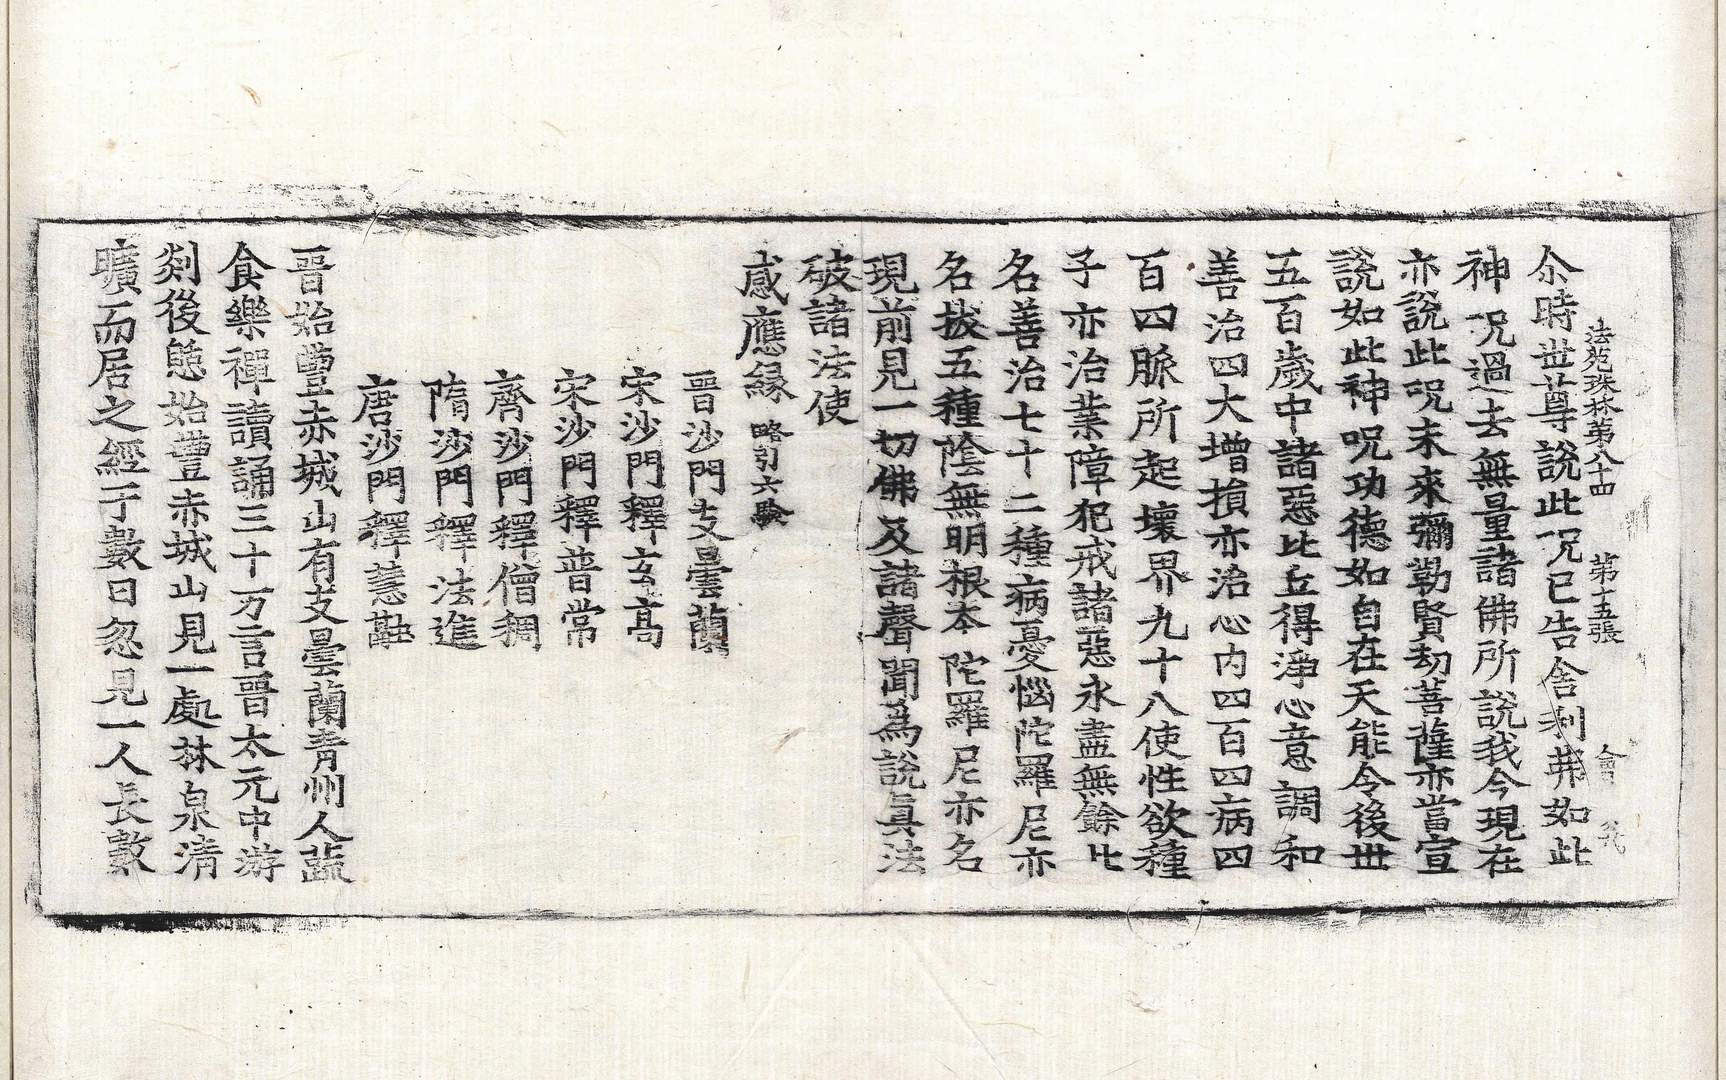 法苑珠林第八十四　第十五張　會
尒時世尊說此呪已告舍利弗如此
神呪過去無量諸佛所說我今現在
亦說此呪未來彌勒賢劫菩薩亦當宣
說如此神呪功德如自在天能令後世
五百歲中諸惡比丘得淨心意調和
善治四大增損亦治心內四百四病四
百四脈所起壞界九十八使性欲種
子亦治業障犯戒諸惡永盡無餘比
名善治七十二種病憂惱陀羅尼亦
名拔五種陰無明根本陀羅尼亦名
現前見一切佛及諸聲聞爲說眞法
破諸法使
感應緣　略引六驗
晉沙門支曇蘭
宋沙門釋玄高
宋沙門釋普常
齊沙門釋僧稠
隋沙門釋法進
唐沙門釋慧
晉始豐赤城山有支曇蘭青州人蔬
食樂禪讀誦三十万言晉太元中游
剡後憇始豐赤城山見一處林泉清
曠而居之經于數日忽見一人長數